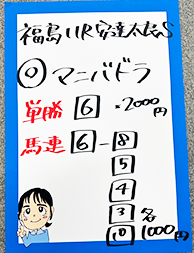 福島11R安達太良S
◎マニバドラ
単勝 6 ×2000円
馬連 6-8
5
4
3 各
10 1000円